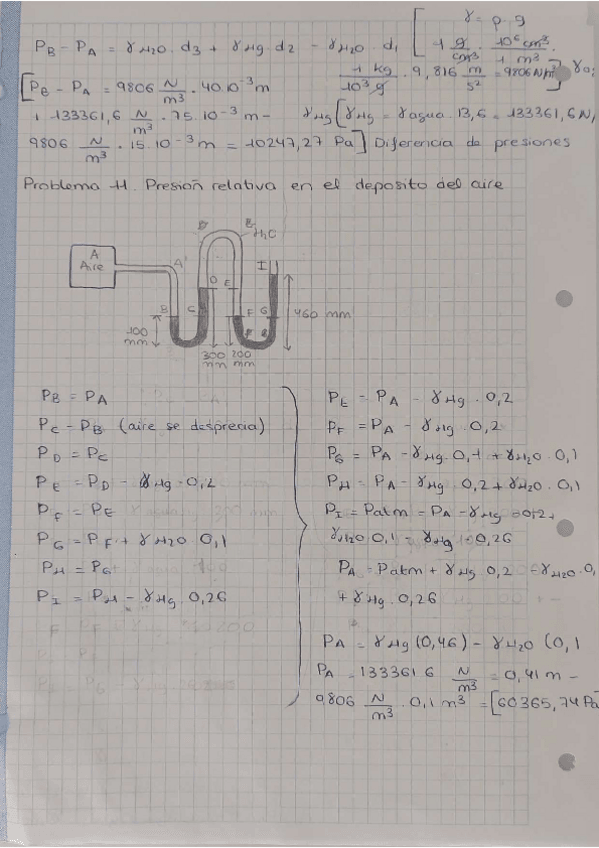 γ = ρ . g
P_B - P_A = γ_H2O . d3 + γ_Hg . d2 - γ_H2O . d1 [1 g/cm³ . 10⁶ cm³/1 m³ .
[P_B - P_A = 9806 N/m³ . 40.10⁻³ m 1 kg/10³ g . 9,816 m/s² = 9806 N/m³]
+ 133361,6 N/m³ . 75.10⁻³ m - γ_Hg [γ_Hg = γ agua . 13,6 = 133361,6 N,
9806 N/m³ . 15.10⁻³ m = 10247,27 Pa] Diferencia de presiones
Problema 11. Presión relativa en el deposito del aire
A
Aire
A'
H2O
I
B
C
D
E
F
G
100
mm
300
mm
200
mm
460 mm
P_B = P_A
P_C = P_B (aire se desprecia)
P_D = P_C
P_E = P_D - γ_Hg . 0,2
P_F = P_E
P_G = P_F + γ_H2O 0,1
P_H = P_G
P_I = P_H - γ_Hg . 0,26
P_E = P_A - γ_Hg . 0,2
P_F = P_A - γ_Hg . 0,2
P_G = P_A - γ_Hg . 0,1 + γ_H2O . 0,1
P_H = P_A - γ_Hg . 0,2 + γ_H2O . 0,1
P_I = Patm = P_A - γ_Hg . 0,2 +
γ_H2O 0,1 - γ_Hg . 0,26
P_A = Patm + γ_Hg . 0,2 - γ_H2O . 0,
+ γ_Hg . 0,26
P_A = γ_Hg (0,46) - γ_H2O (0,1
P_A = 133361 6 N/m³ = 0,41 m -
9806 N/m³ . 0,1 m³ = [60365,74 Pa